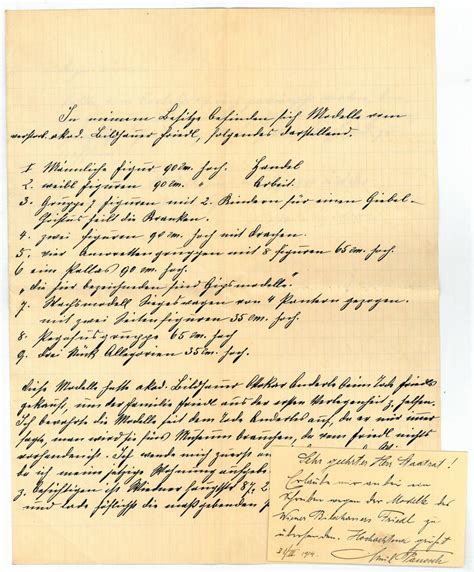 In meinem Besitze befinden sich Modelle vom
verstorb. akad. Bildhauer Friedl, folgendes darstellend.
1 Männliche Figur 90 cm. hoch. Handel
2. weibl Figuren 90 cm. " Arbeit.
3. Gruppe 7 Figuren mit 2 Kindern für einen Giebel-
Christus heilt die Kranken.
4. zwei Figuren 90 cm hoch mit Drachen.
5. vier Amorettengruppen mit 8 Figuren 65 cm. hoch.
6 ein Pallas 90 cm. hoch.
"die hier bezeichneten sind Gipsmodelle."
7. Wachsmodell Siegeswagen von 4 Pantern gezogen.
mit zwei Seitenfiguren 35 cm. hoch.
8. Pegasusgruppe 65 cm hoch
9. drei Stück Allegorien 35 cm. hoch.
Diese Modelle hatte akad. Bildhauer Otokar beim Tode Friedls
gekauft, um der Familie Friedl aus der ersten Verlegenheit z. helfen.
Ich bewahrte die Modelle seit dem Tode auf, da er mir immer
sagte, man wird sie fürs Museum brauchen, da vom Friedl nichts
vorhanden ist. Ich wende mich zuerst an
da ich meine jetzige Wohnung aufgebe
z. besichtigen ist Wiedner Hauptstr 87. 2
und lade höflichst die maßgebenden
Sehr geehrter Herr Staatsrat!
Erlaube mir anbei ein
Schreiben wegen der Modelle des
Wiener Bildhauers Friedl zu
übersenden. Hochachtend grüßt
31/III 1914. Emil